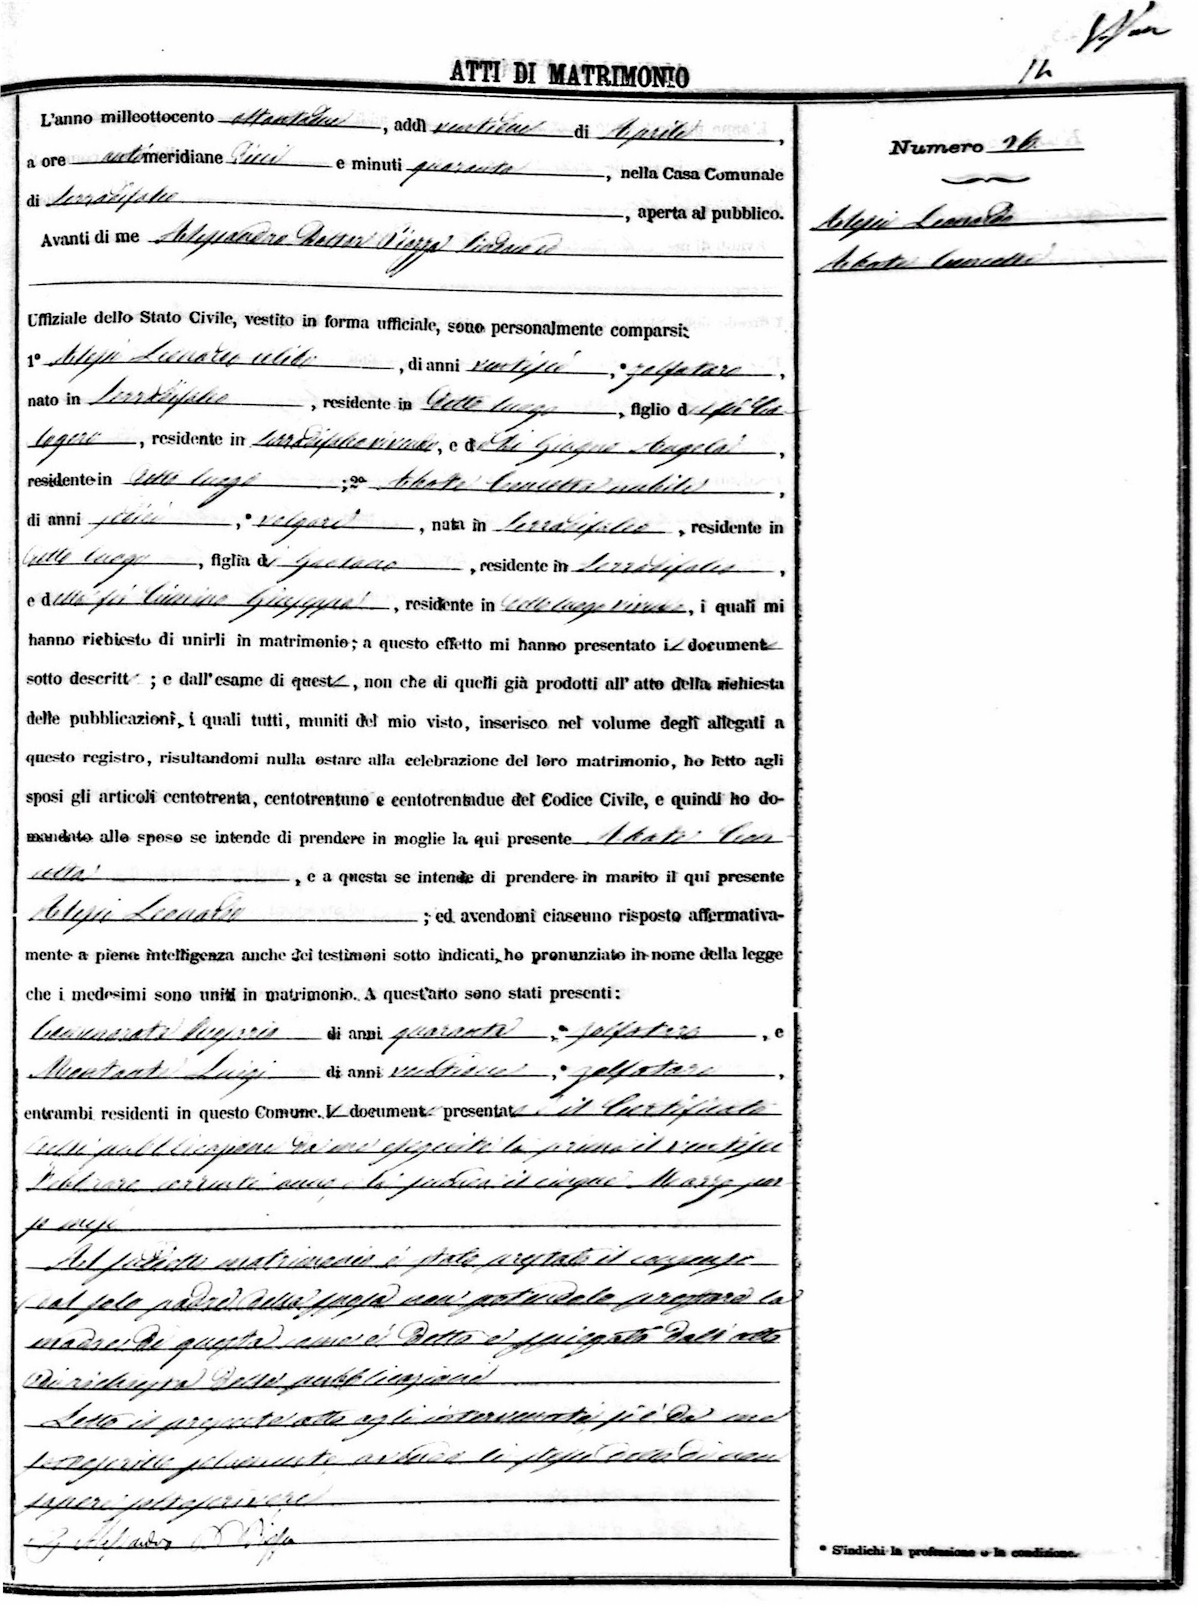 ATTI DI MATRIMONIO
Numero 26
Alessi Leonardo
Abate Concetta
L'anno milleottocento ottantadue, addì ventidue di Aprile,
a ore antimeridiane dieci e minuti quaranta, nella Casa Comunale
di Serradifalco, aperta al pubblico.
Avanti di me Alessandro Dottor Piazza Sindaco
Uffiziale dello Stato Civile, vestito in forma ufficiale, sono personalmente comparsi:
1º Alessi Leonardo celibe, di anni ventisei, * zolfataro,
nato in Serradifalco, residente in detto luogo, figlio del fu Ca-
logero, residente in Serradifalco vivendo, e della Giugno Angela,
residente in detto luogo; 2º Abate Concetta nubile,
di anni , * , nata in Serradifalco, residente in
detto luogo, figlia di Gaetano, residente in Serradifalco,
e della fu Cimino Giuseppa, residente in detto luogo vivendo, i quali mi
hanno richiesto di unirli in matrimonio; a questo effetto mi hanno presentato il document
sotto descritt ; e dall'esame di quest , non che di quelli già prodotti all'atto della richiesta
delle pubblicazioni, i quali tutti, muniti del mio visto, inserisco nel volume degli allegati a
questo registro, risultandomi nulla ostare alla celebrazione del loro matrimonio, ho letto agli
sposi gli articoli centotrenta, centotrentuno e centotrentadue del Codice Civile, e quindi ho do-
mandato allo sposo se intende di prendere in moglie la qui presente Abate Con
cetta, e a questa se intende di prendere in marito il qui presente
Alessi Leonardo; ed avendomi ciascuno risposto affermativa-
mente a piena intelligenza anche dei testimoni sotto indicati, ho pronunziato in nome della legge
che i medesimi sono uniti in matrimonio. A quest'atto sono stati presenti:
di anni quaranta, * zolfataro, e
Montante Luigi di anni ventidue, * zolfataro,
entrambi residenti in questo Comune. I document presentat è il Certificato
delle pubblicazioni da me eseguite la prima il ventisei
Febbraro corrente anno e la seconda il cinque Marzo
Al suddetto matrimonio è stato prestato il consenso
dal solo padre della sposa non potendolo prestare la
madre di questa come è detto e spiegato dall'atto
di richiesta delle pubblicazioni
Letto il presente atto agli intervenuti, si è da me
sottoscritto solamente avendo li stessi detto di non
sapere sottoscrivere
* S'indichi la professione o la condizione.